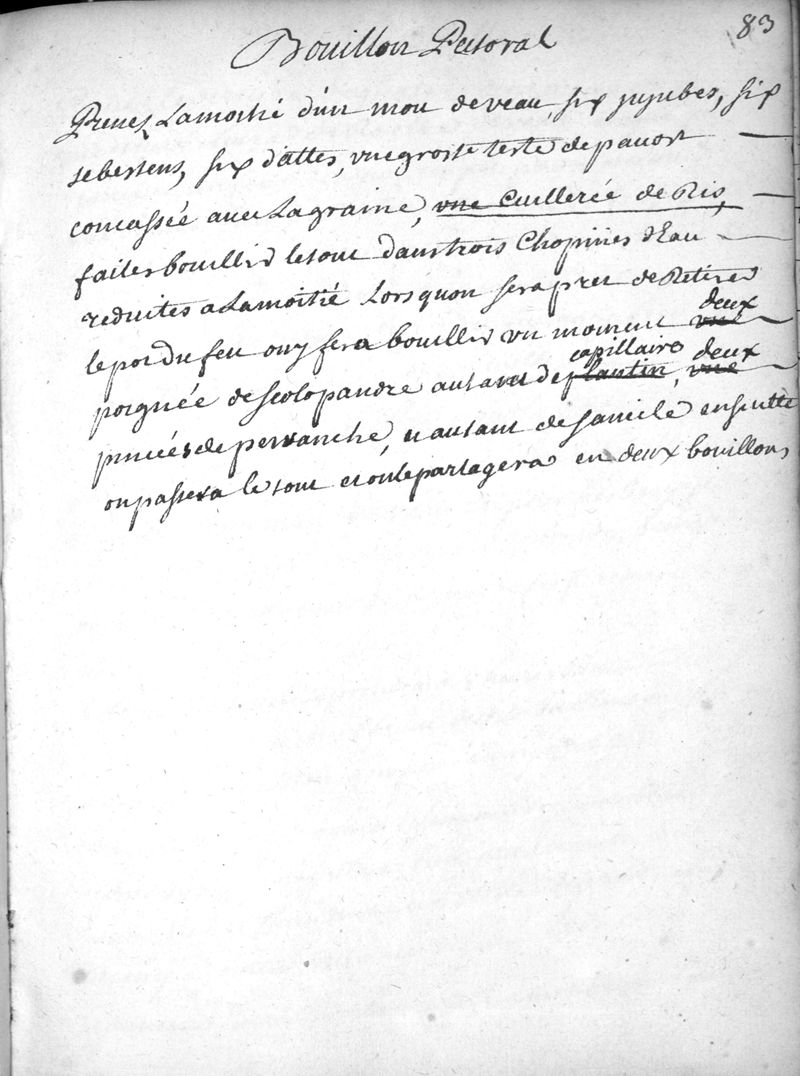 83
Bouillon Pectoral
Prenez Lamoitié d'un mou de veau six jujubes, six
sebestens, six dattes, une grosse teste de pavost
concassée avec Lagraine, une Cuillerée de Ris,
faites bouillir le tout dans trois Chopines d'Eau
reduites a Lamoitié Lorsquon sera prest de Retirer
le pot du feu on y fera bouillir un moment une deux
poignée de scolopandre autant de plantin capillaire, une deux
pincées de pervanche, et autant de sanicle ensuitte
on passera le tout et on le partagera en deux bouillons